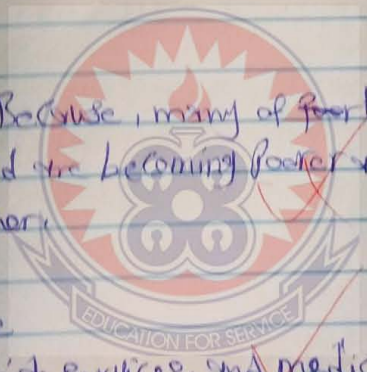 Because, many of poor
d are becoming Poorer
nor.
EDUCATION FOR SERVICE
and medic